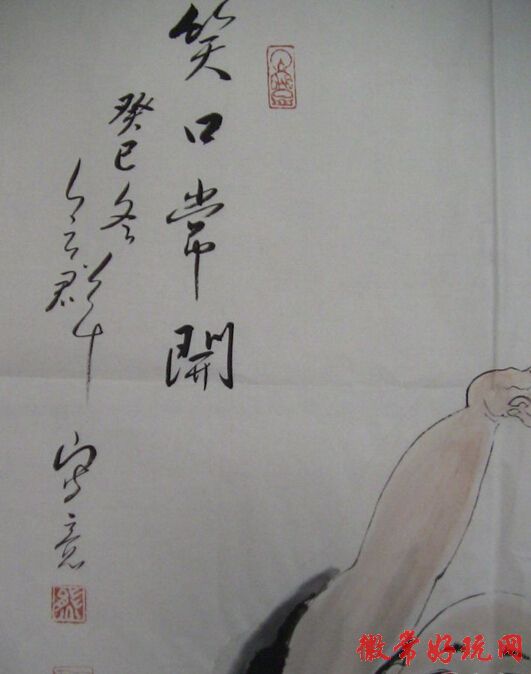 笑口常開
癸巳冬
寫意
徽常好玩网